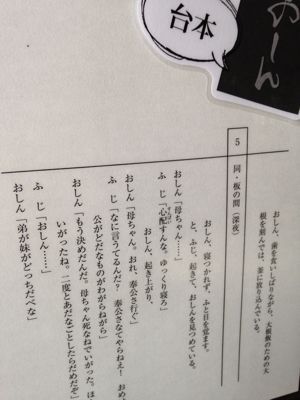 おしん
台本
おしん、歯を食いしばりながら、大根飯のための大
根を刻んでは、釜に放り込んでいる。
5 同・板の間(深夜)
おしん、寝つかれず、ふと目を覚ます。
と、ふじ、起きて、おしんを見つめている。
おしん「母ちゃん……」
ふじ「心配すんな、ゆっくり寝ろ」
おしん、起き上がり、
おしん「母ちゃん。おれ、奉公さ行ぐ」
ふじ「なに言うてるんだ? 奉公さなてやらねえ! おめ、
公がどだなものがわがらねがら」
おしん「もう決めだんだ。母ちゃん死なねでいがった。ほ
いがったね。二度とあだなごとしたらだめだぞ」
ふじ「おしん……」
おしん「弟が妹がどっちだべな」